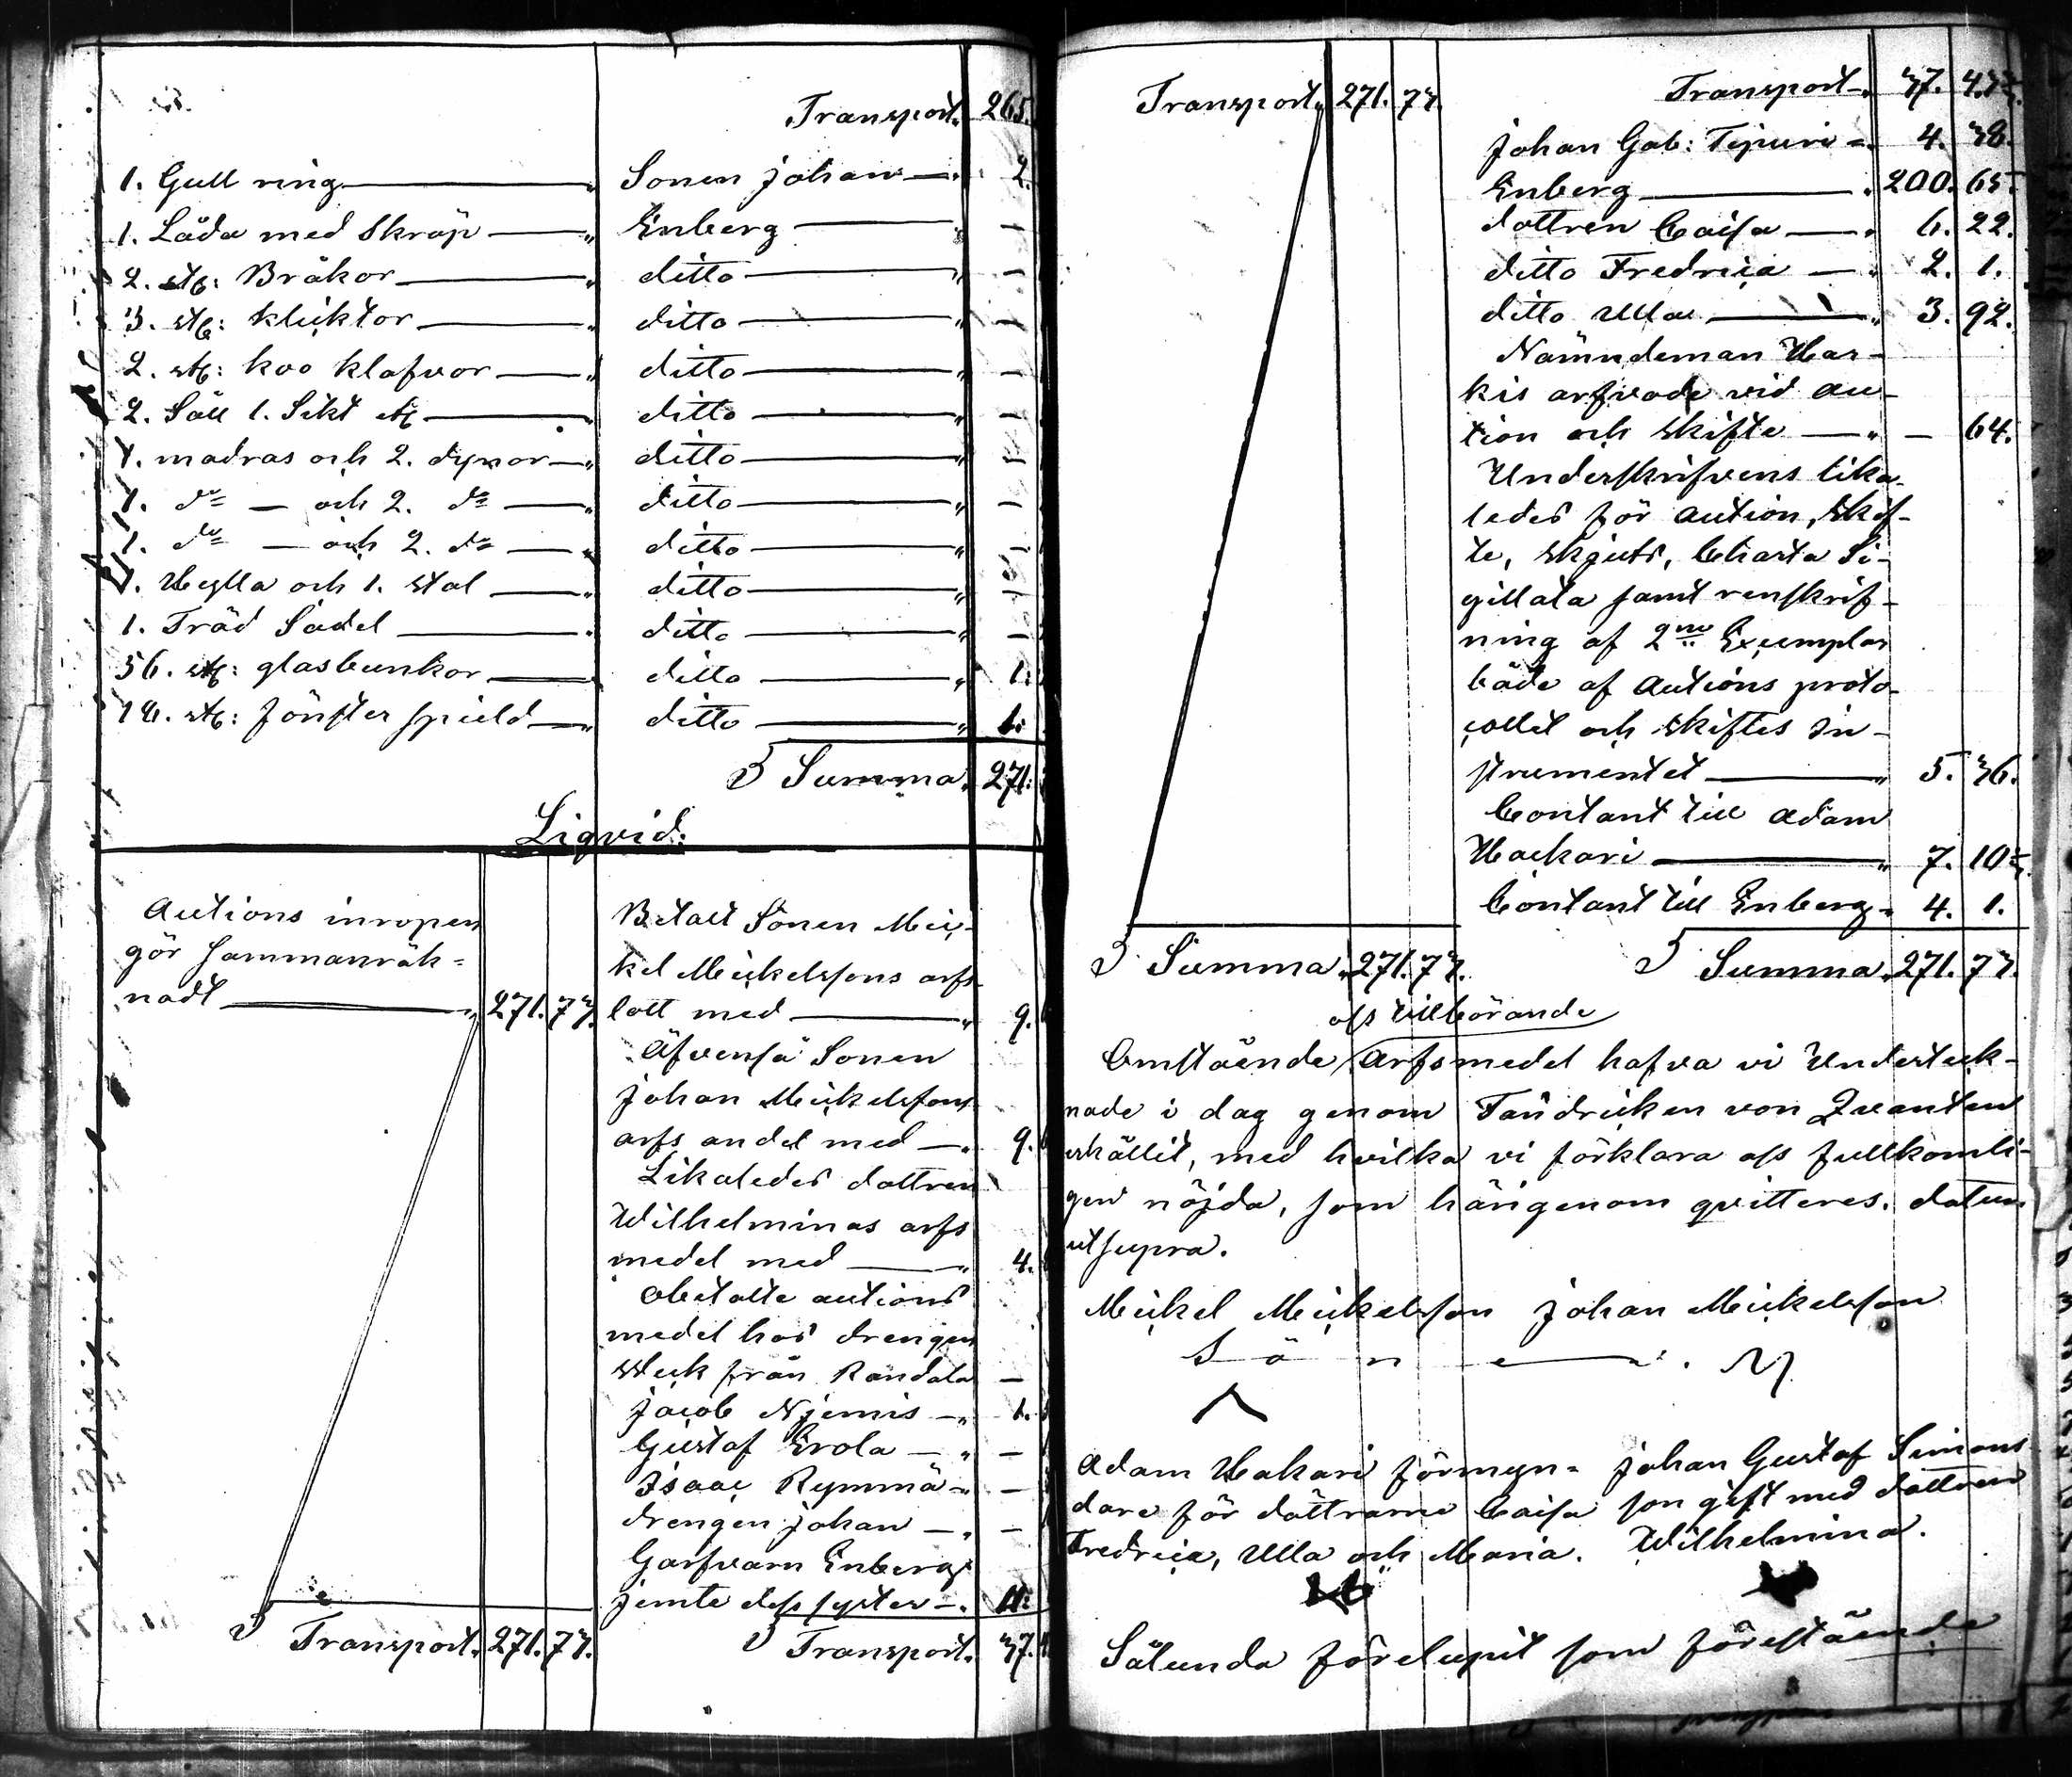 Transport. 265.
1. Gull ring — Sonen Johan — 2.
1. Låda med Skräp — Enberg — —
2. st: Bråkor — ditto — —
3. st: kliktor — ditto — —
2. st: koo klafvor — ditto — —
2. Såll 1. Sikt — ditto — —
1. madras och 2. dynor — ditto — —
1. do — och 2. do — ditto — —
1. do — och 2. do — ditto — —
1. Hylla och 1. stol — ditto — —
1. Träd Sadel — ditto — —
56. st: glasbunkor — ditto — 1.
st: fönster spield — ditto — 1.
Summa. 271.
Liqvid:
Auctions inropen
gör sammanräk=
nadt — 271. 73.
Betalt Sonen Mic-
kel Mickelssons arfs
lott med — 9.
Äfvenså Sonen
Johan Mickelssons
arfs andel med — 9.
Likaledes dottren
Wilhelminas arfs
medel med — 4.
Obetalte auctions
medel hos drengen
från Randala —
Jacob Njemis — 1.
Gustaf Erola — —
Isaac Rymmä — —
drengen Johan — —
Garfvarn Enberg
jemte dess syster — 11.
Transport. 271. 73. Transport. 37.
Transport. 271. 73. Transport. 37.
Johan Gab: Tijuri — 4. 38.
Enberg — 200. 65.
dottren Caisa — 6. 22.
ditto Fredrica — 2. 1.
ditto Ulla — 3. 92.
Nämndeman Har-
kis arfvode vid au-
tion och skifte — — 64.
Underskrifvens lika-
ledes för aution, skif-
te, skjuts, Charta Si-
gillata samt renskrif-
ning af 2ne Exemplar
både af Autions proto-
collet och skiftes In-
strumentet — 5. 36.
Contant till Adam
Hackari — 7. 10½.
Contant till Enberg. 4. 1.
Summa. 271. 73. Summa. 271. 73.
oss tillhörande
Omstående Arfsmedel hafva vi Underteck-
nade i dag genom Fändricken von Qvanten
erhållit, med hvilka vi förklara oss fullkomli-
gen nöjda, som härigenom qvitteres. datum
utsupra.
Mickel Mickelsson Johan Mickelsson
S ö n e r.
Adam Hakari förmyn= Johan Gustaf Simons
dare för döttrarne Caisa son gift med dottren
Fredrica, Ulla och Maria. Wilhelmina.
Sålunda förelupit som förestående